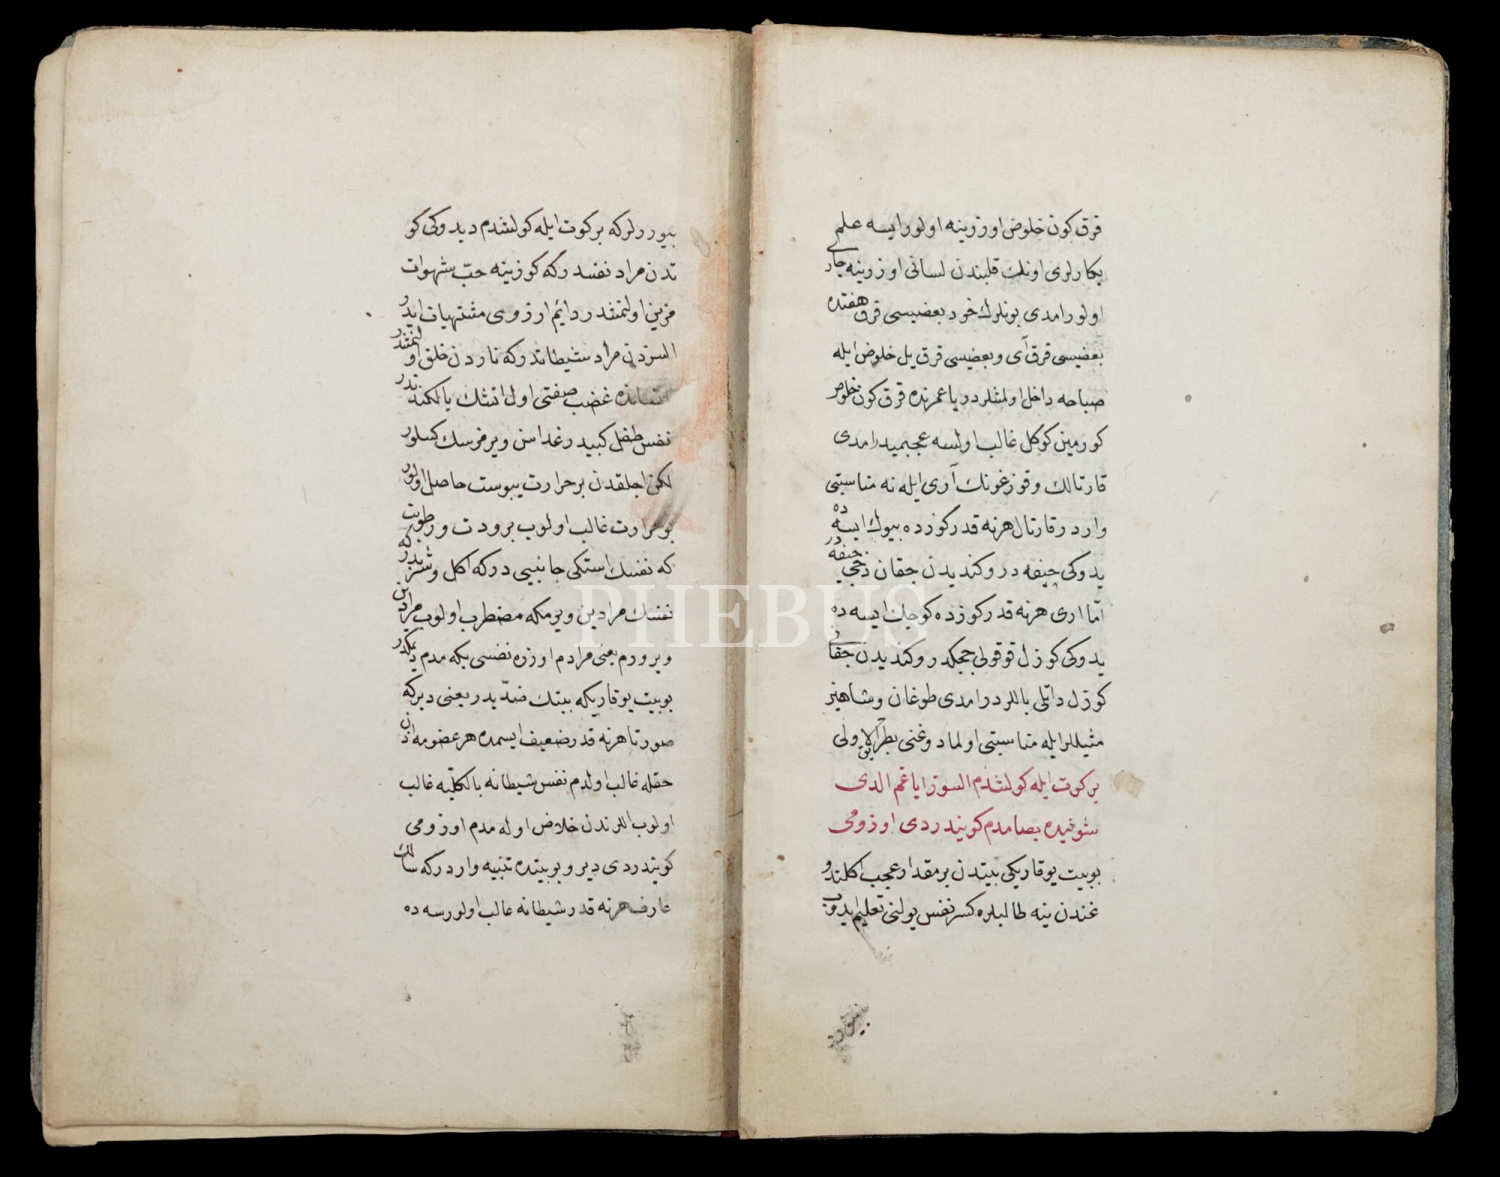 قرق كون خلوص اوززينه اولور ايسه علم
بكارلوى اونك قلبندن لسانى اوززينه جار
اولور امدى بونلرك خود بعضيسى قرق هفتده
بعضيسى قرق آى و بعضيسى قرق يل خلوص ايله
صباحه داخل اولمشلردر يا عمرنده قرق كون خلوص
كورمين كوكل غالب اولسه عجبميدر امدى
قارتالك و قوزغونك آرى ايله نه مناسبتى
واردر قارتال هرنه قدر كوزده بيوك ايسه ده
يدوكى جيفه در و كنديدن چقان دخى جيفه در
اما ارى هرنه قدر كوزده كوچك ايسه ده
يدوكى كوزل قوقولى چچكدر و كنديدن چقان
كوزل داتلى باللردر امدى طوغان و شاهينر
مثيللر ايله مناسبتى اولمادوغنى بطريق الاولى
بر كوت ايله كولشدم السوز اياغم الدى
شونيده بصامدم كويندردى اوزومى
بو بيت يوقاريكى بيتدن بر مقدار عجب اكلندو
غندن ينه طالبلره كسر نفس يولنى تعليم ايدوب
بيورر
بيوررلر كه بر كوت ايله كولشدم ديدوكى كو
تدن مراد نفسدر كه كوزينه حبّ شهوات
مزين اولنمشدر دائم ارزوى مشتهيات ايدر
السزدن مراد شيطاندر كه ناردن خلق اولنمشدر
غضب صفتى اول اتشك يالكندندر
نفس طفل كبيدر غداسن ويرمزسك كسلور
لكن اجلقدن بر حرارت يبوست حاصل اولور
بو حرارت غالب اولوب برودت و رطوبت
كه نفسك استكى جانبيدر كه اكل و شربدر كه
نفسك مرادين ويرمكه مضطرب اولوب مرادين
ويرورم يعنى مرادم اوزره نفسى يكه مدم ديمكدر
بو بيت يوقاريكه بيتك ضدّيدر يعنى ديركه
صورتا هرنه قدر ضعيف ايسمده هر عضومه دن
حقله غالب اولدم نفس شيطانه بالكليه غالب
اولوب اللرندن خلاص اوله مدم اوزومى
كويندردى دير و بو بيتده تنبيه واردر كه سالك
عارف هرنه قدر شيطانه غالب اولورسه ده
PHEBUS